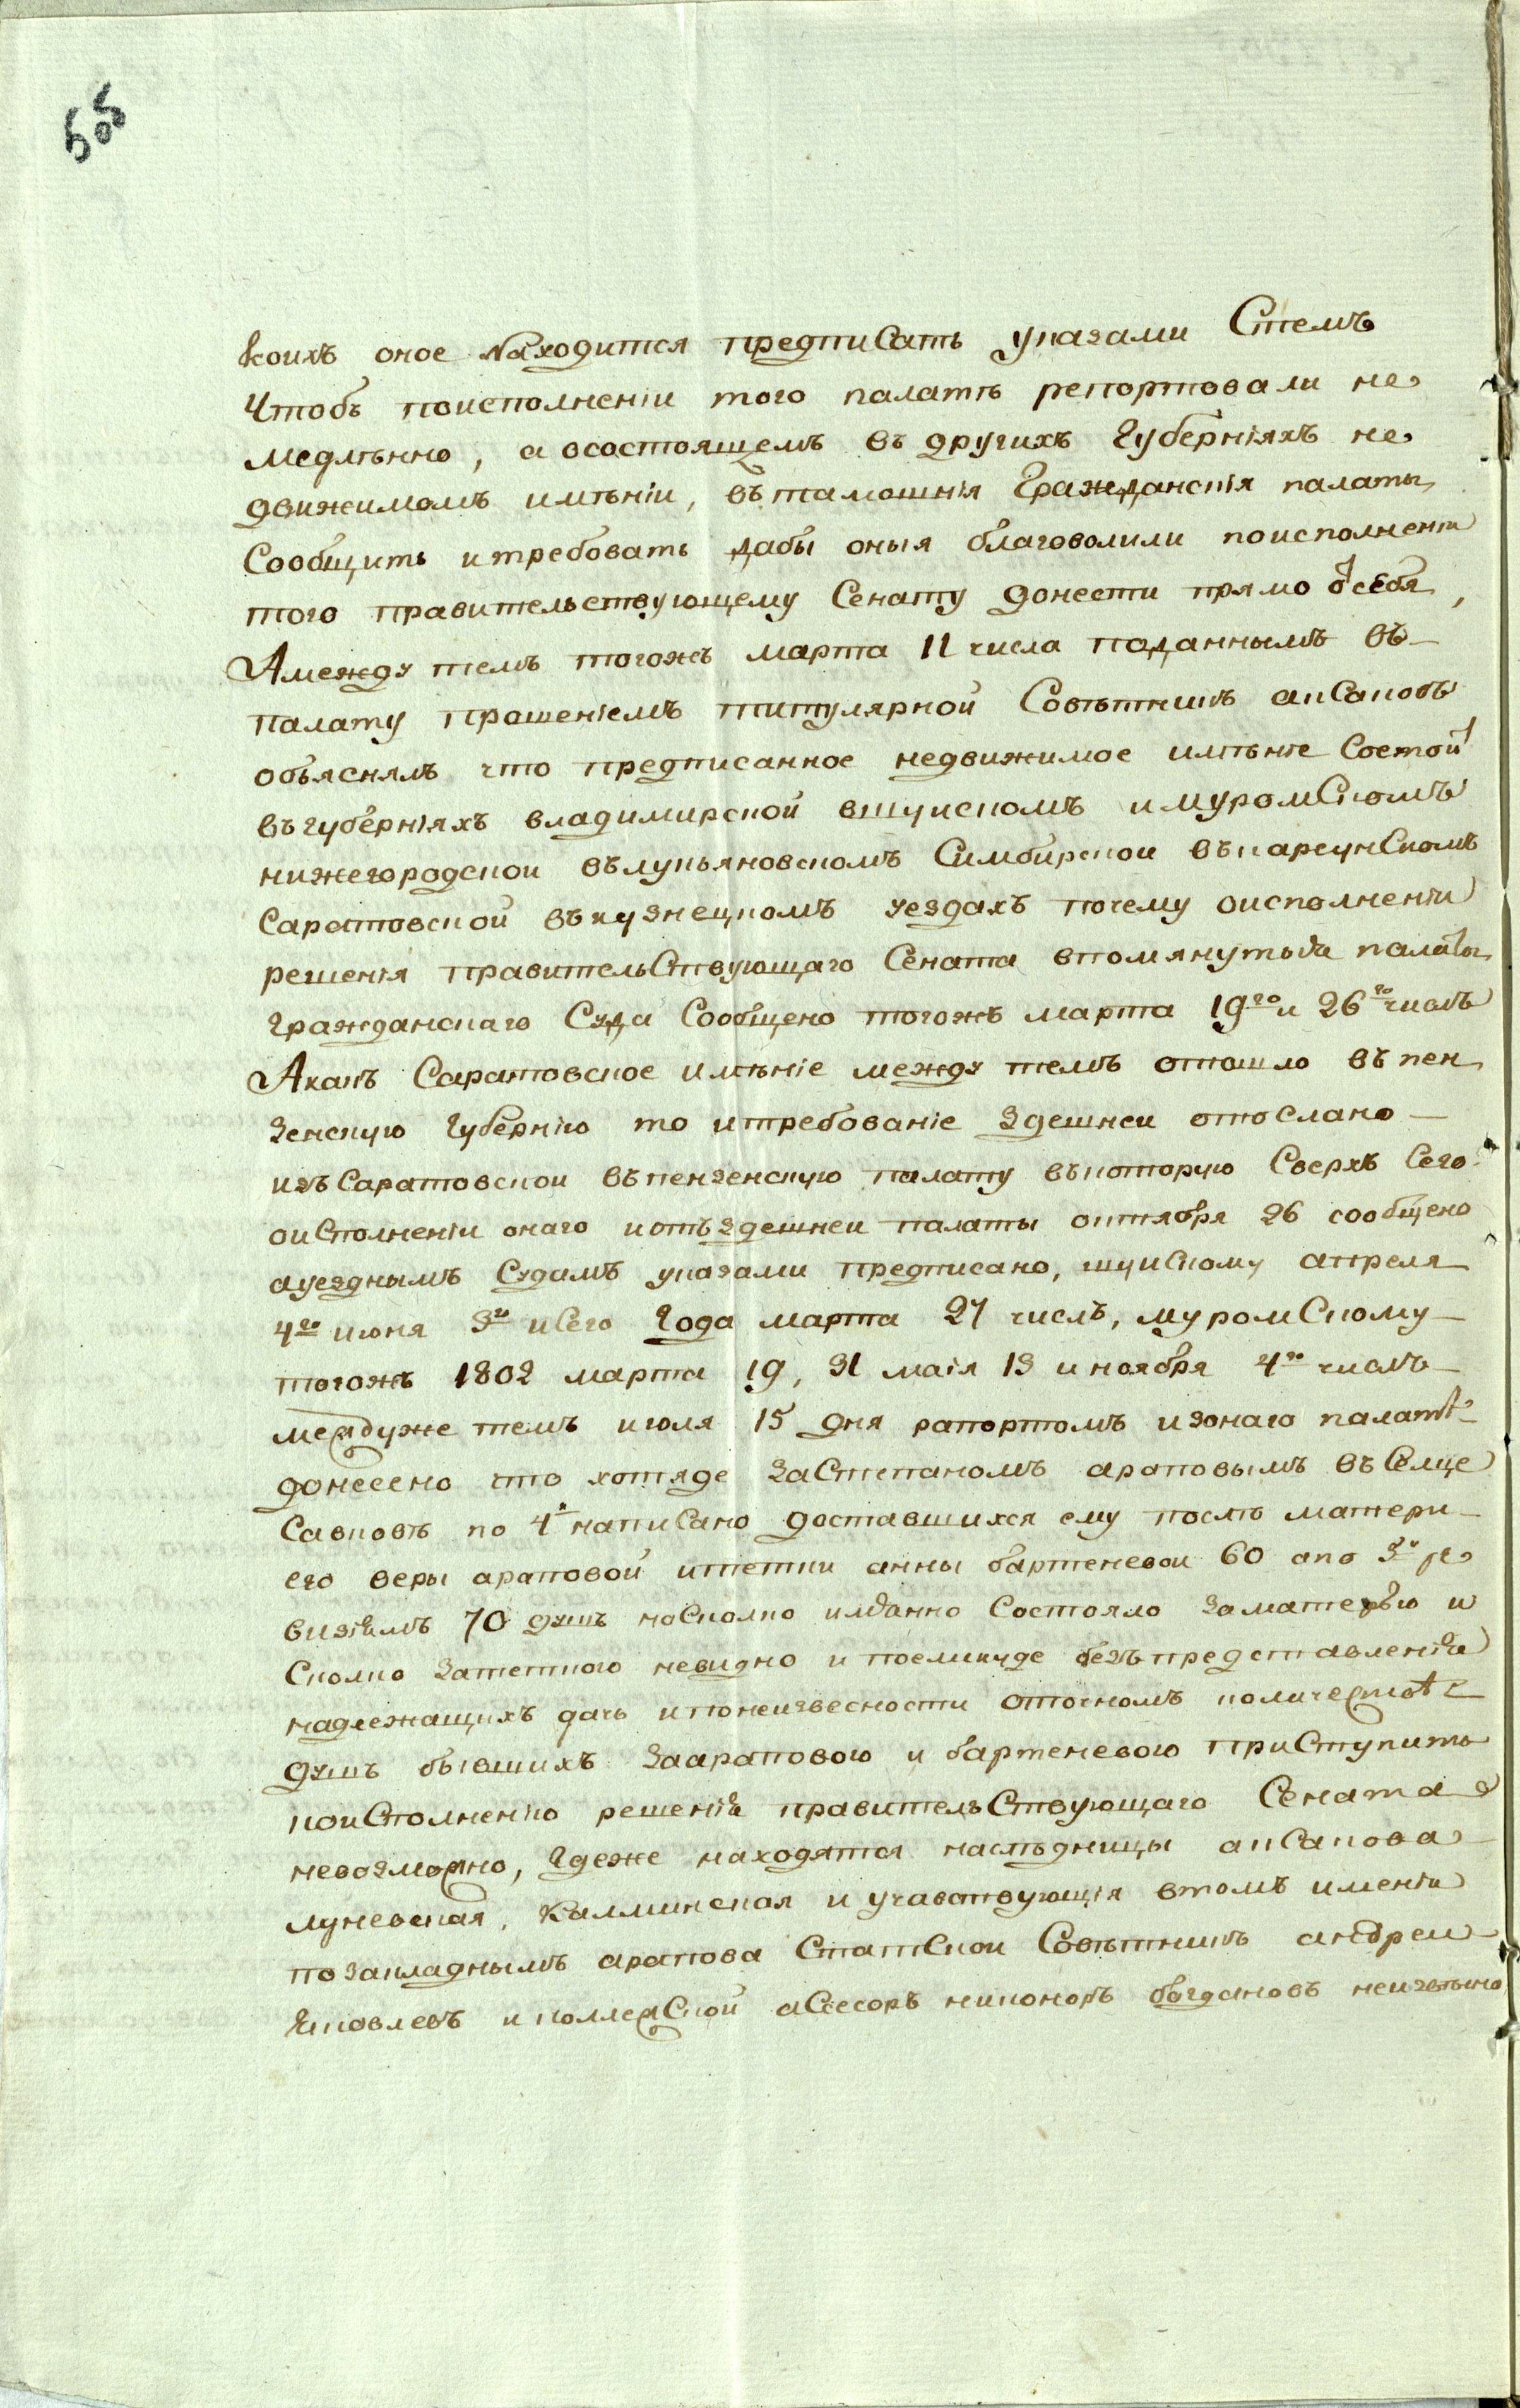 505
коихъ оное находится предписать указами Стемъ
Чтобъ поисполненіи того палатѣ репортовали не
медлѣнно, а осостоящемъ въ другихъ Губерніяхъ не
движимомъ имѣніи, въ тамошнія Гражданскія палаты
Сообщить и требовать дабы оныя благоволили поисполненіи
того правительствующему Сенату донести прямо отсебя,
А между темъ тогожъ марта 11 числа поданнымъ въ
палату прошеніемъ титулярной Совѣтникъ аксаковъ
объяснялъ что предписанное недвижимое имѣніе Состоитъ
въ губерніяхъ владимирской вшуискомъ и муромСкомъ
нижегородскои вълукьяновскомъ Симбирскои въ карсунСкомъ
Саратовской въ кузнецкомъ уездахъ почему оисполненіи
решенія правительСтвующаго Сената впомянутыя палаты
гражданскаго Суда Сообщено тогожъ марта 19го и 26го числъ
А какъ Саратовское имѣніе между темъ отошло въ пен
зенскую Губернію то и требованіе здешнеи отослано
изъ Саратовскои въ пензенскую палату въ которую Сверхъ Сего
оиСполненіи онаго и отъ здешнеи палаты октября 26 сообщено
ауезднымъ Судамъ указами предписано, шуиСкому апреля
4го июня 3го и Сего Года марта 27 числъ, муромСкому
тогожъ 1802 марта 19, 31 маія 13 и ноября 4го числъ
междуже темъ июля 15 дня рапортомъ изонаго палатѣ
донесено что хотяде за Степаномъ араповымъ въ Селце
Савковѣ по 4й напиСано доставшихся ему послѣ матери
его веры араповой и тетки анны бартеневои 60 а по 3й ре
визіямъ 70 душъ но Сколко имянно Состояло за матерью и
Сколко за теткою невидно и поеликуде безъ представленія
надлежащихъ дачь и по неизвесности оточномъ количествѣ
душъ бывшихъ за араповою и бартеневою приСтупить
коиСполненію решенія правительСтвующаго Сената
невозможно, Гдеже находятся наслѣдницы акСакова
луневская, Калминская и участвующія втомъ именіи
по закладнымъ арапова СтатСкои Совѣтникъ андреи
Яковлевъ и коллежСкой аСсесоръ никоноръ богдановъ неизвѣсно